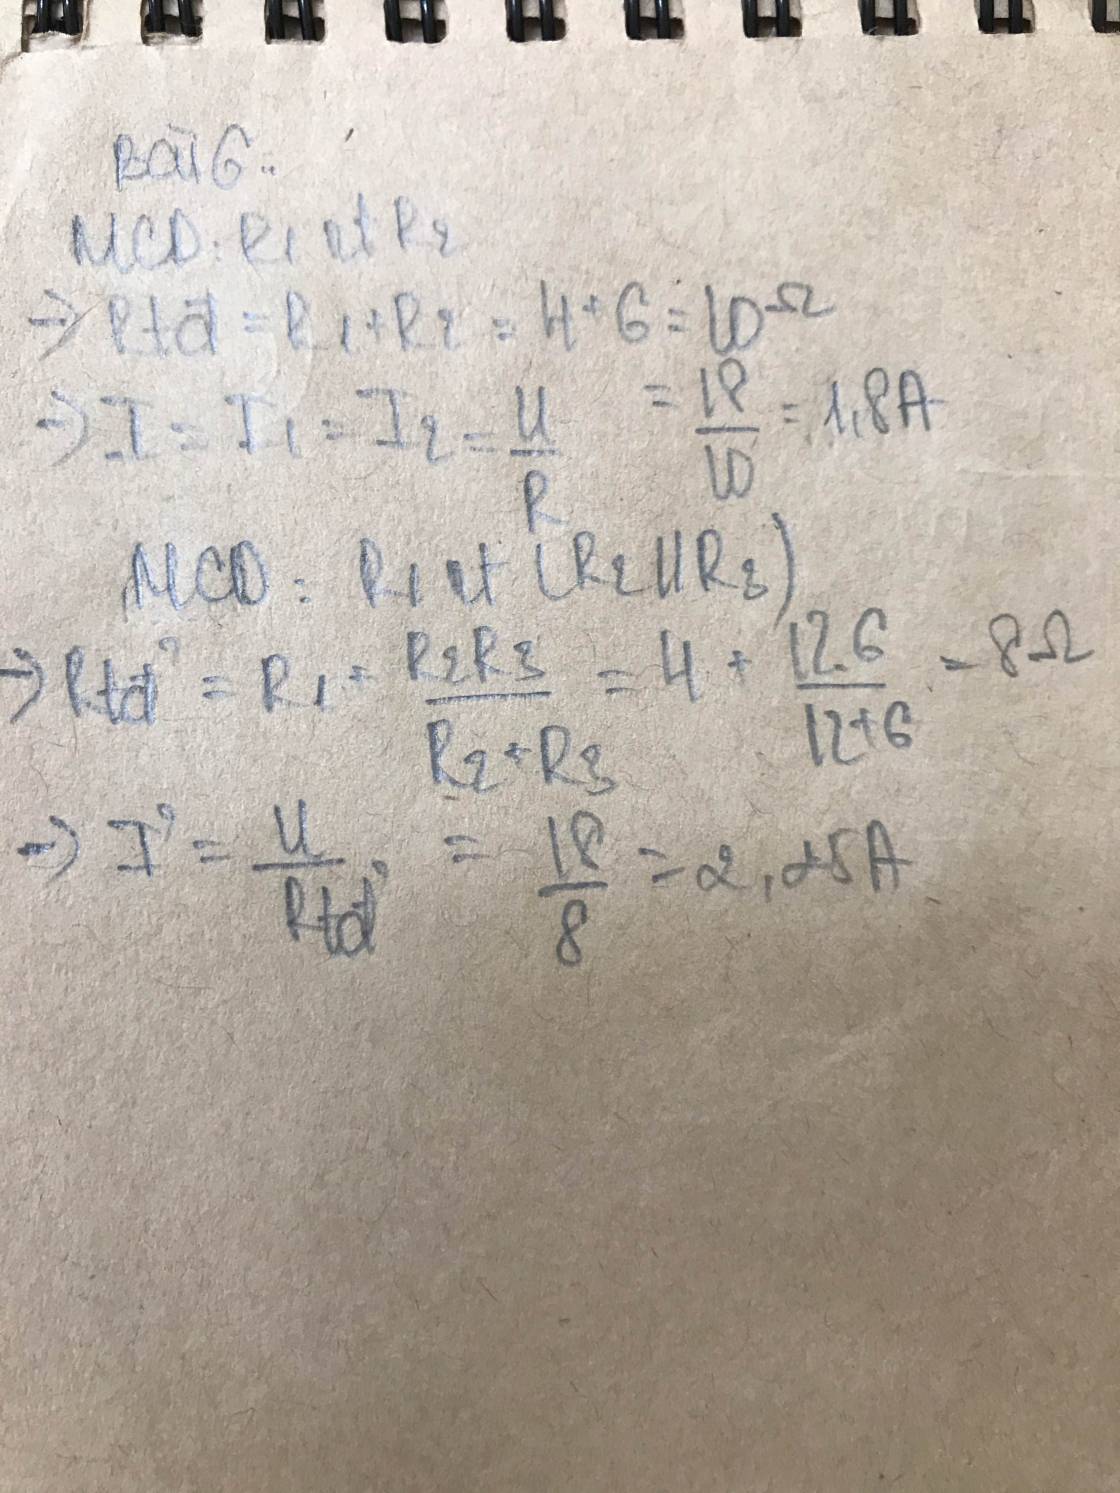 Bài 6:
MCD: R1 nt R2
→ Rtđ = R1 + R2 = 4 + 6 = 10Ω
→ I = I1 = I2 = U/R = 18/10 = 1,8A
MCD: R1 nt (R2 // R3)
→ Rtđ' = R1 + R2R3/R2+R3 = 4 + 12.6/12+6 = 8Ω
→ I' = U/Rtđ' = 18/8 = 2,25A